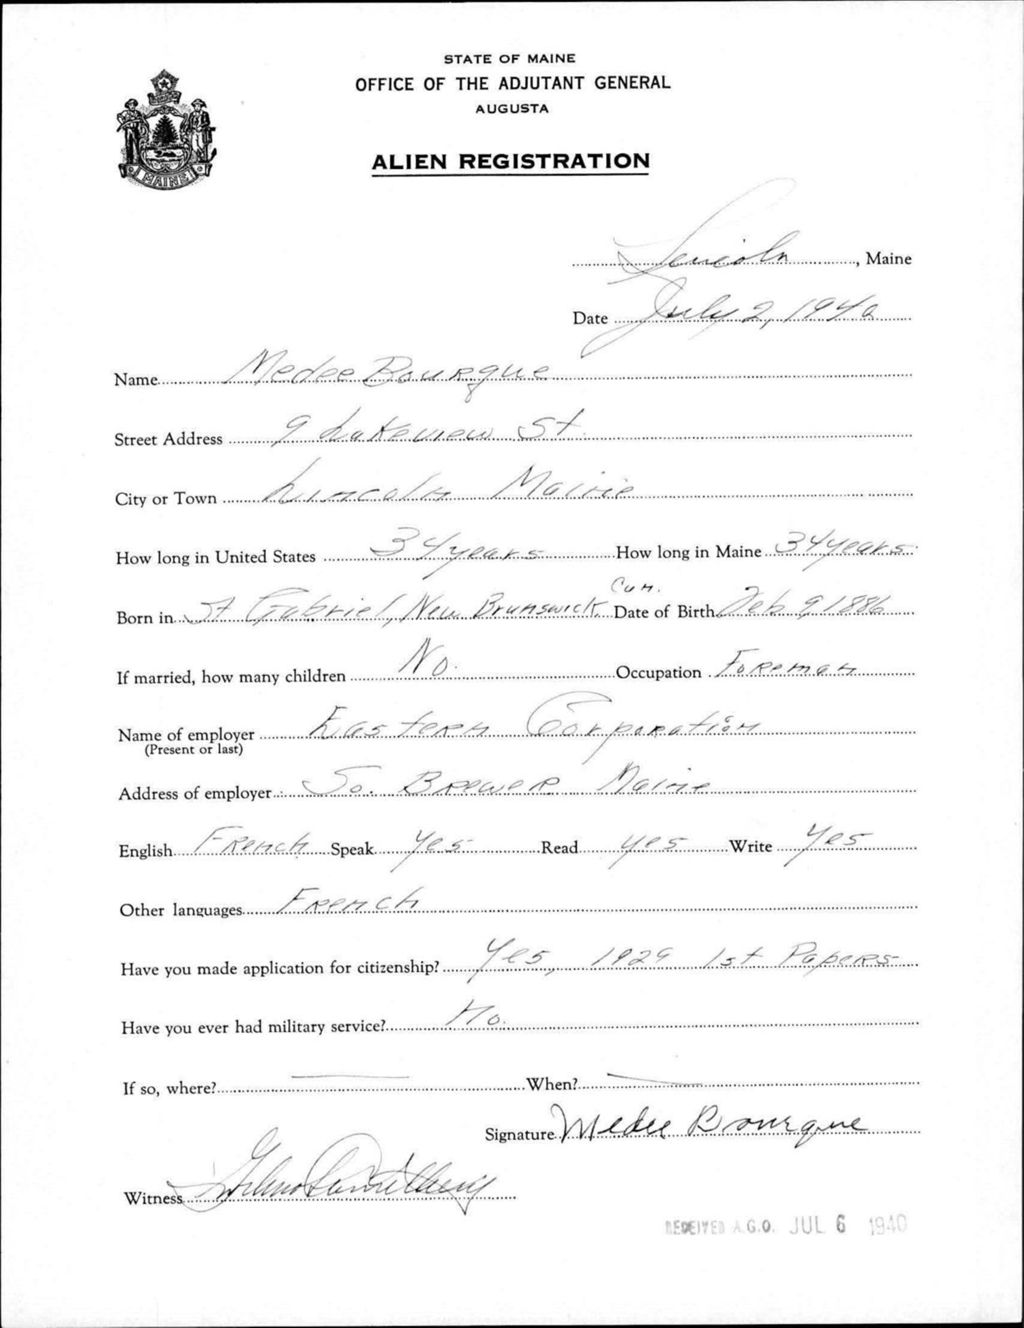 STATE OF MAINE
OFFICE OF THE ADJUTANT GENERAL
AUGUSTA
MAINE
ALIEN REGISTRATION
Lincoln, Maine
Date July 2, 1940
Name Medee Bourgue
Street Address 9 Lakeview St
City or Town Lincoln Maine
How long in United States 34 years How long in Maine 34 years
Born in St Gabriel, New Brunswick Can. Date of Birth Feb 9 1886
If married, how many children No. Occupation Foreman
Name of employer Eastern Corporation
(Present or last)
Address of employer So. Brewer Maine
English French Speak Yes Read yes Write Yes
Other languages French
Have you made application for citizenship? Yes, 1929 1st Papers
Have you ever had military service? No.
If so, where? When?
Signature Medee Bourgue
Witness
RECEIVED A.G.O. JUL 6 1940